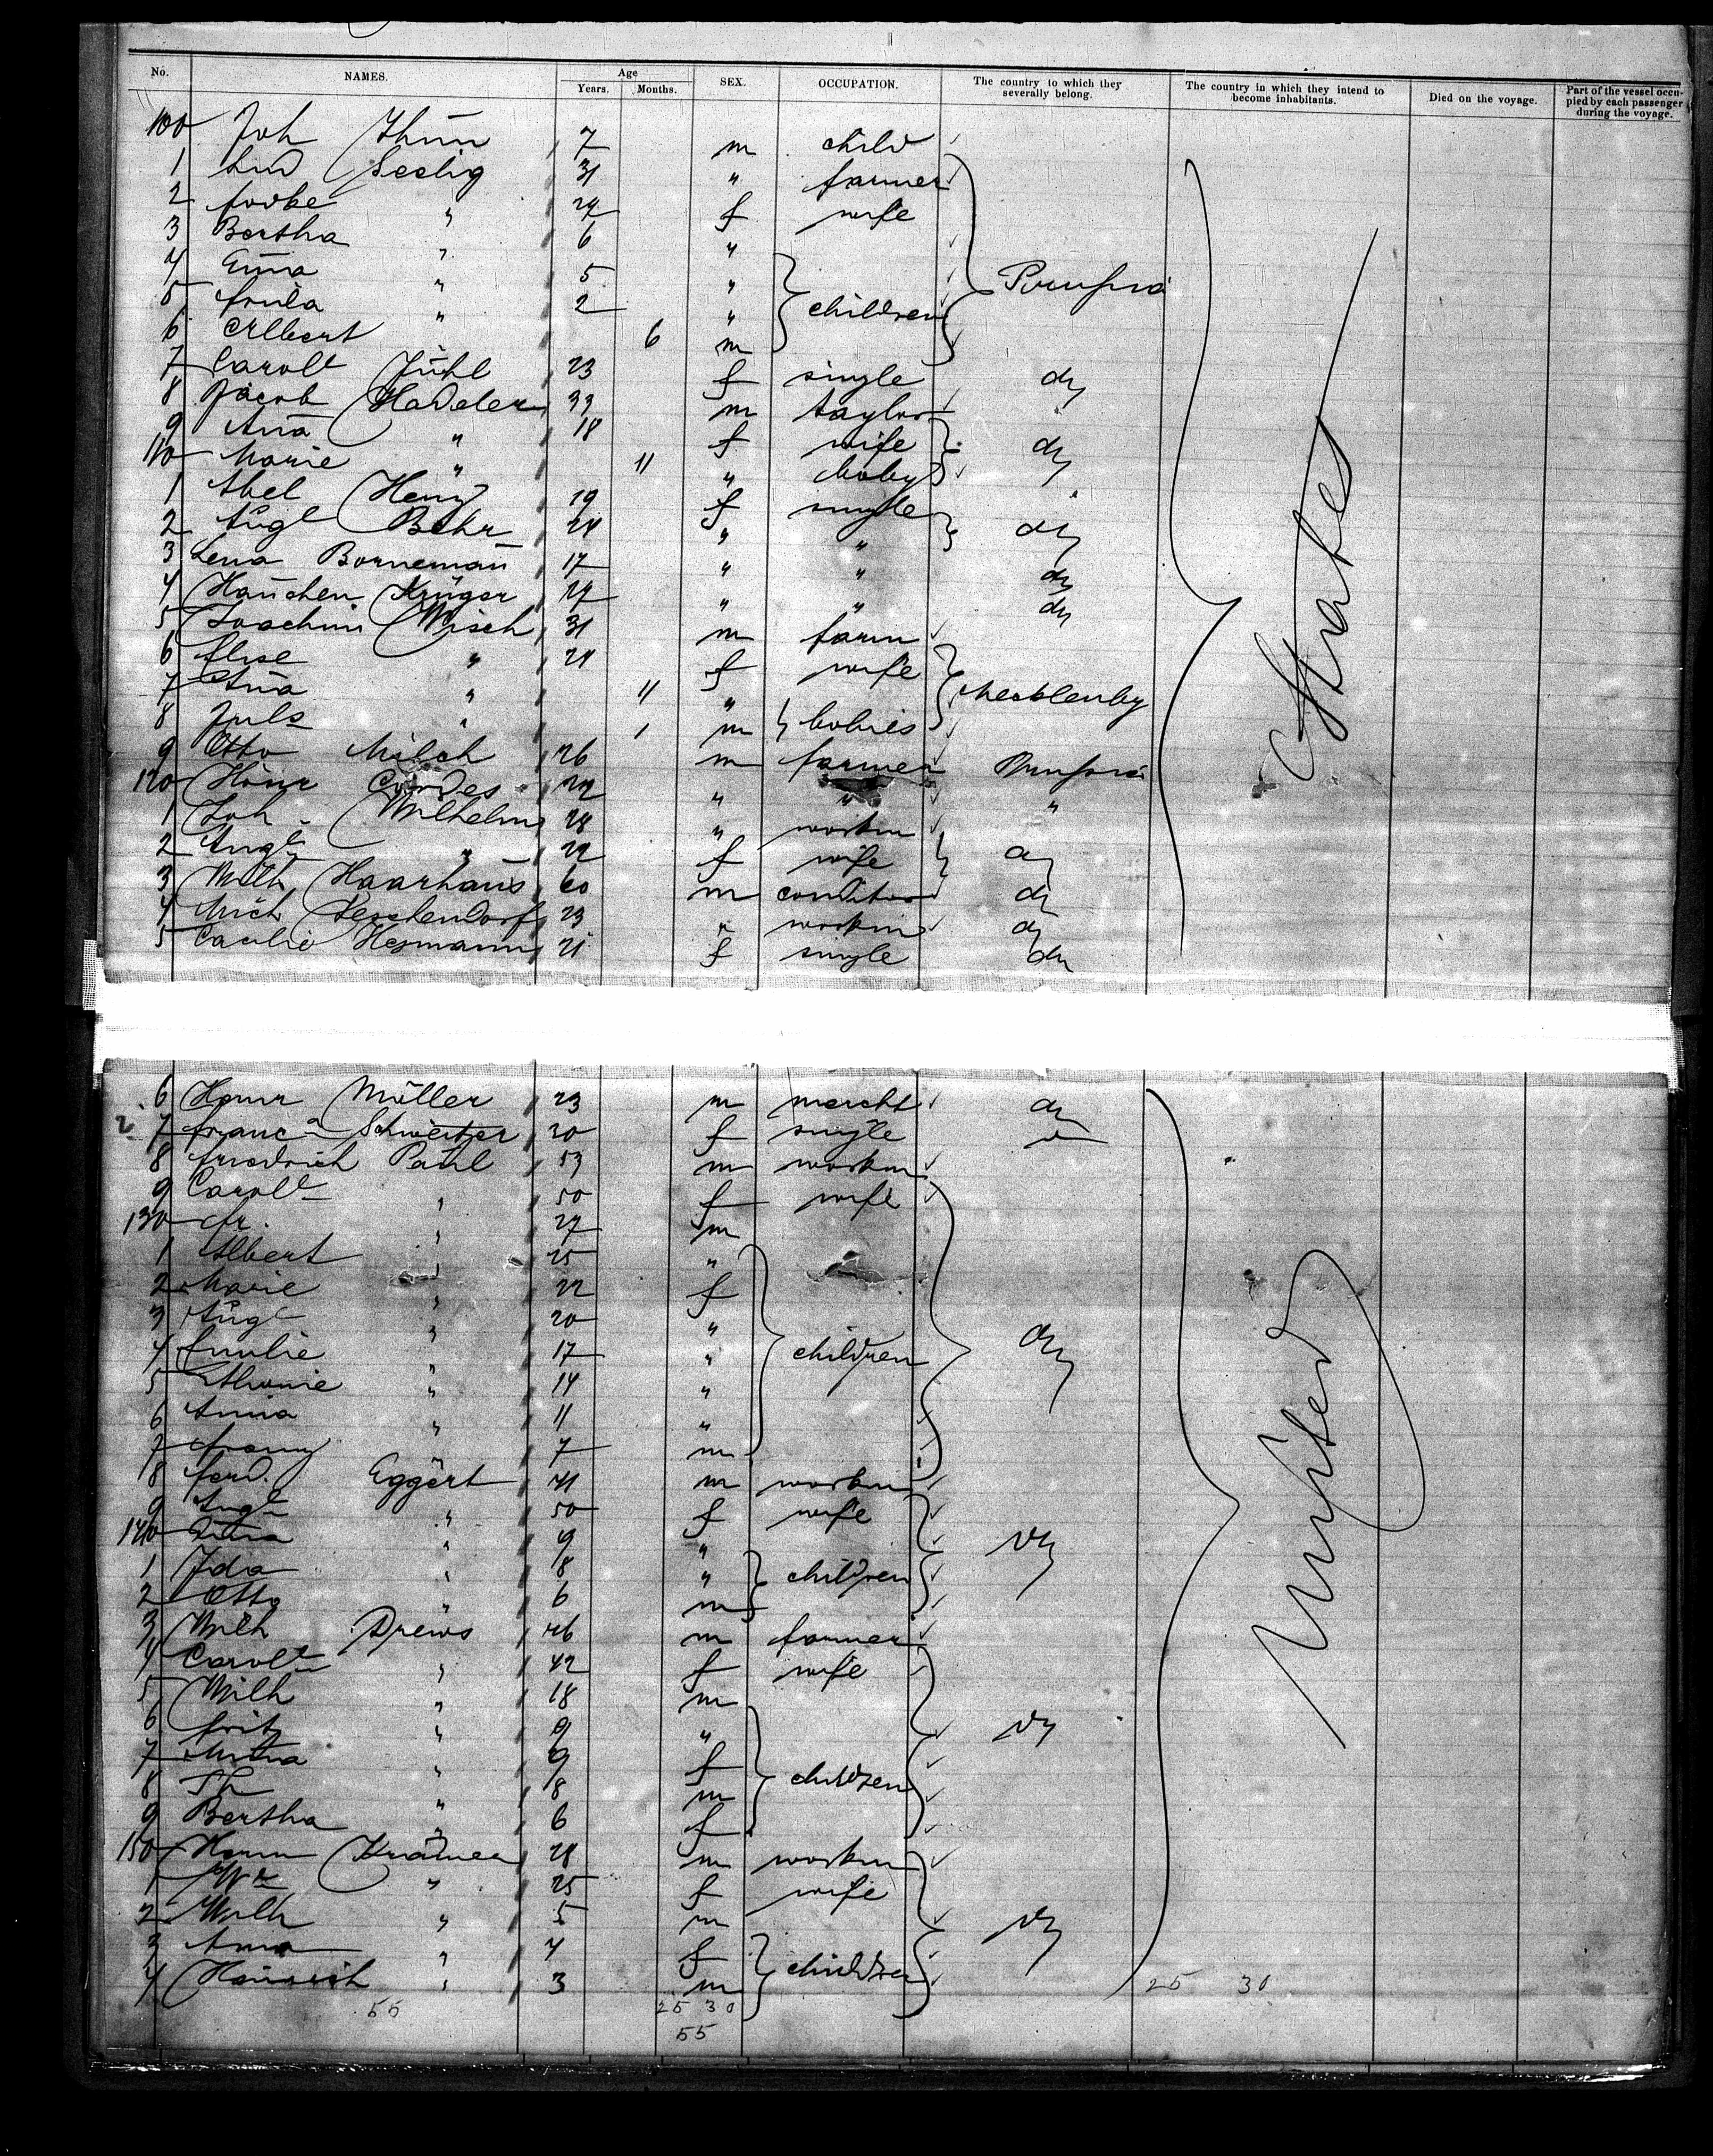 No. NAMES. Age Years. Months. SEX. OCCUPATION. The country to which they severally belong. The country in which they intend to become inhabitants. Died on the voyage. Part of the vessel occupied by each passenger during the voyage.
100 Joh Thun 7 m child
1 Lud Seelig 31 " farmer
2 " f wife
3 Bertha " 6 "
4 " 5 " Prussia
5 " 2 " children
6 Albert 6 m
7 Carole Juhl 23 f single do
8 Jacob Hadeler 33 m taylor
9 Aña " 18 f wife do
110 Marie " 11 " baby
1 Abel Heny 19 f single
2 Augte Behr 24 " " do
3 Lena Bornemañ 17 " " do
4 Hañchen Krüger 24 " " do
5 Joachim Wisch 31 m farm
6 Elise " 24 f wife
7 Aña " 11 " Mecklenbg
8 Juls " 1 m babies
9 Otto Milch 26 m farmer Prussia
120 Heinr Cordes " " "
1 Joh Wilhelm 28 " workm
2 Augte " 22 f wife do
3 Wilh Haarhaus 60 m conditor do
4 Mich 23 " workm do
5 21 f single do
States
6 Hemr Müller 23 m mercht do
7 Schweitzer 20 f single
8 Friedrich Pahl 53 m workm
9 Carole " 50 f wife
130 Fr. " 27 m
1 Albert " 25 "
2 Marie " 22 f
3 Augte " 20 " do
4 Emilie " 17 " children
5 " 14 "
6 Anna " 11 "
7 7 m
8 Ferd. Eggert 41 m workm
9 Augte " 50 f wife
140 " 9 " do
1 Ida " 8 " children
2 Otto " 6 m
3 Wilh Drews 46 m farmer
4 Carole " 42 f wife
5 Wilh " 18 m
6 Fritz " 9 " do
7 Minna " 9 f
8 Th " 8 m children
9 Bertha " 6 f
150 Herm Krämer 28 m workm
1 " 25 f wife
2 Wilh " 5 m do
3 Anna " 4 f
4 Heinrich " 3 m children
United
25 30
55 25 30
55